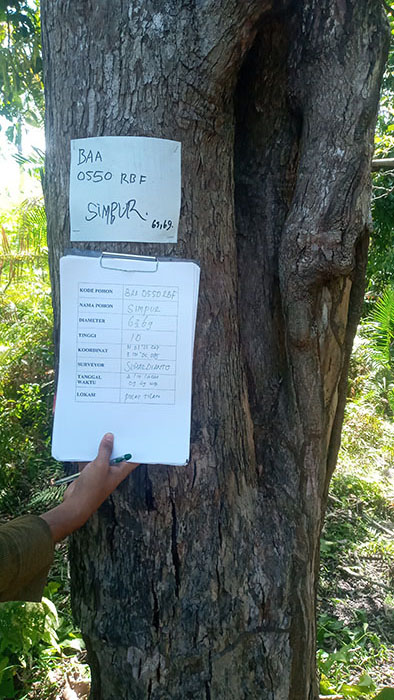 BAA
0550 RBF
SIMPUR.
63,69.
KODE POHON BAA 0550 RBF
NAMA POHON SIMPUR
DIAMETER 63,69
TINGGI 10
KOORDINAT
SURVEYOR
TANGGAL
WAKTU
LOKASI